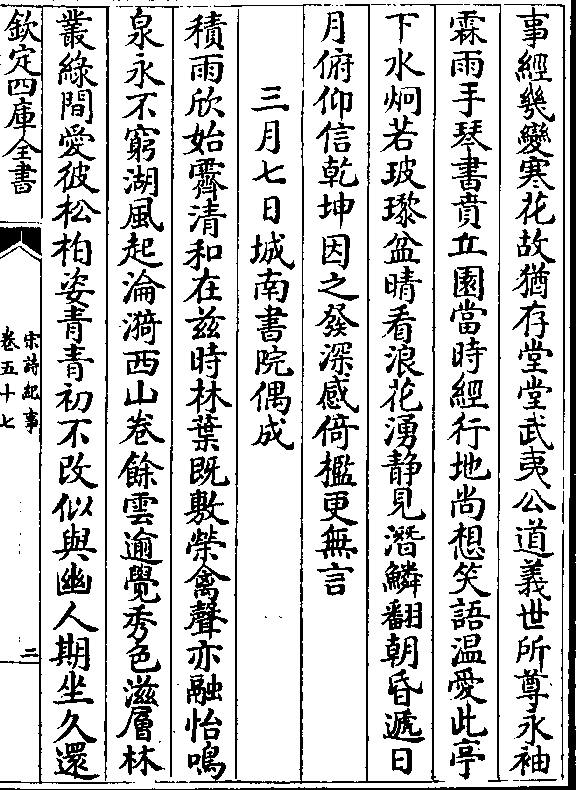 事經幾變寒花故猶存堂堂武夷公道義世所尊永袖
霖雨手琴書賁丘園當時經行地尚想笑語温愛此亭
下水炯若玻瓈盆晴看浪花湧静見潛鱗翻朝昏遞日
月俯仰信乾坤因之發深感倚檻更無言
三月七日城南書院偶成
積雨欣始霽清和在兹時林葉既敷榮禽聲亦融怡鳴
泉永不窮湖風起淪漪西山卷餘雲逾覺秀色滋層林
叢綠間愛彼松柏姿青青初不改似與幽人期坐久還
欽定四庫全書
宋詩紀事
卷五十七
二